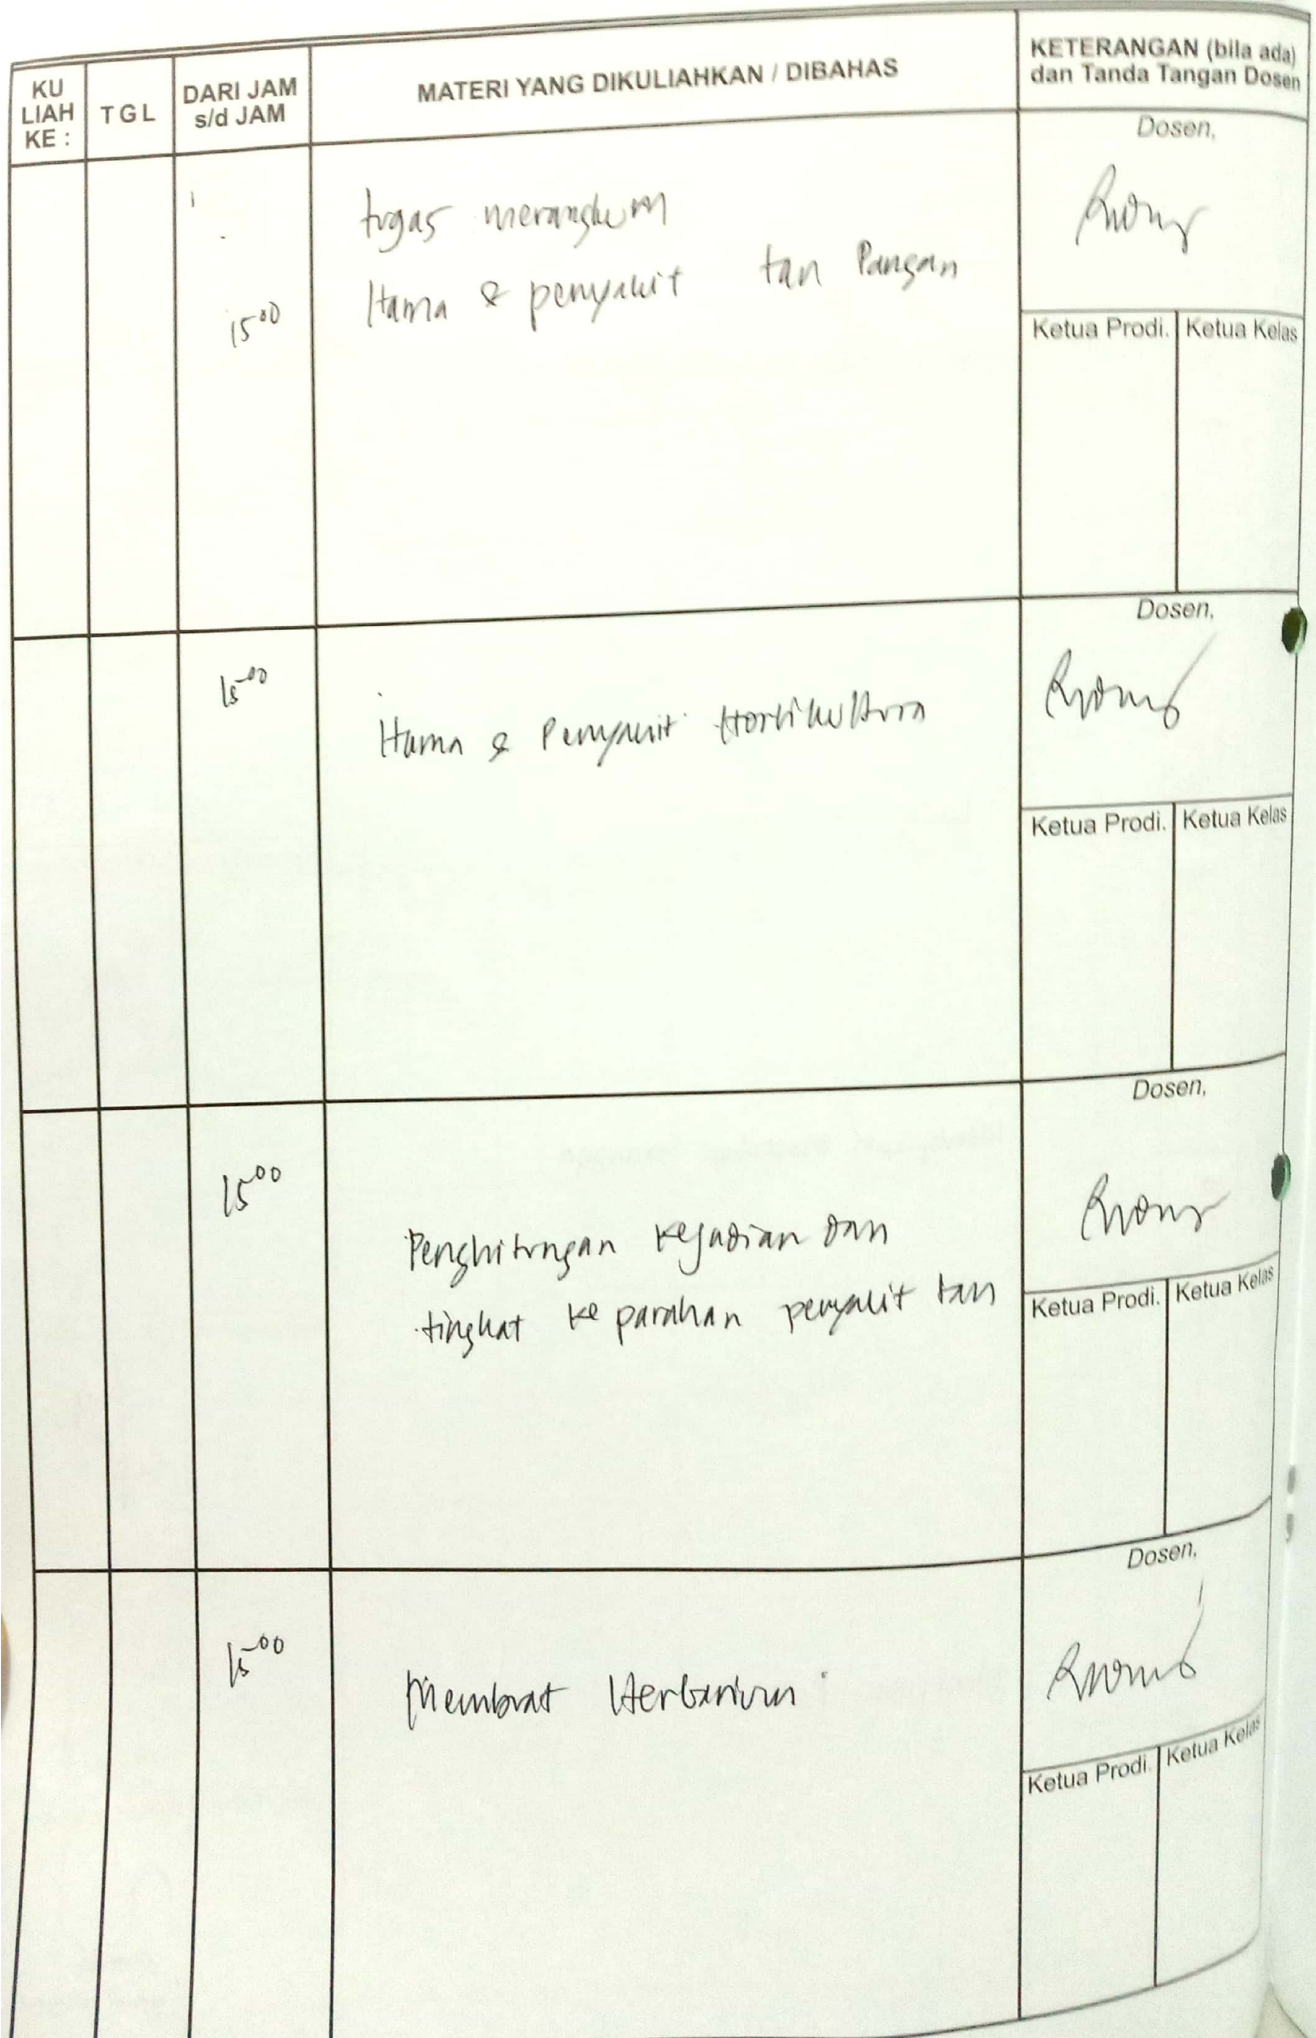 KU LIAH KE :
TGL
DARI JAM s/d JAM
MATERI YANG DIKULIAHKAN / DIBAHAS
KETERANGAN (bila ada) dan Tanda Tangan Dosen
Dosen,
tugas merangkum
Hama & penyakit tan Pangan
15.00
Ketua Prodi.
Ketua Kelas
Dosen,
15.00
Hama & Penyakit Hortikultura
Ketua Prodi.
Ketua Kelas
Dosen,
15.00
Penghitungan kejadian dan
tingkat keparahan penyakit tan
Ketua Prodi.
Ketua Kelas
Dosen,
15.00
Membuat Herbarium
Ketua Prodi.
Ketua Kelas